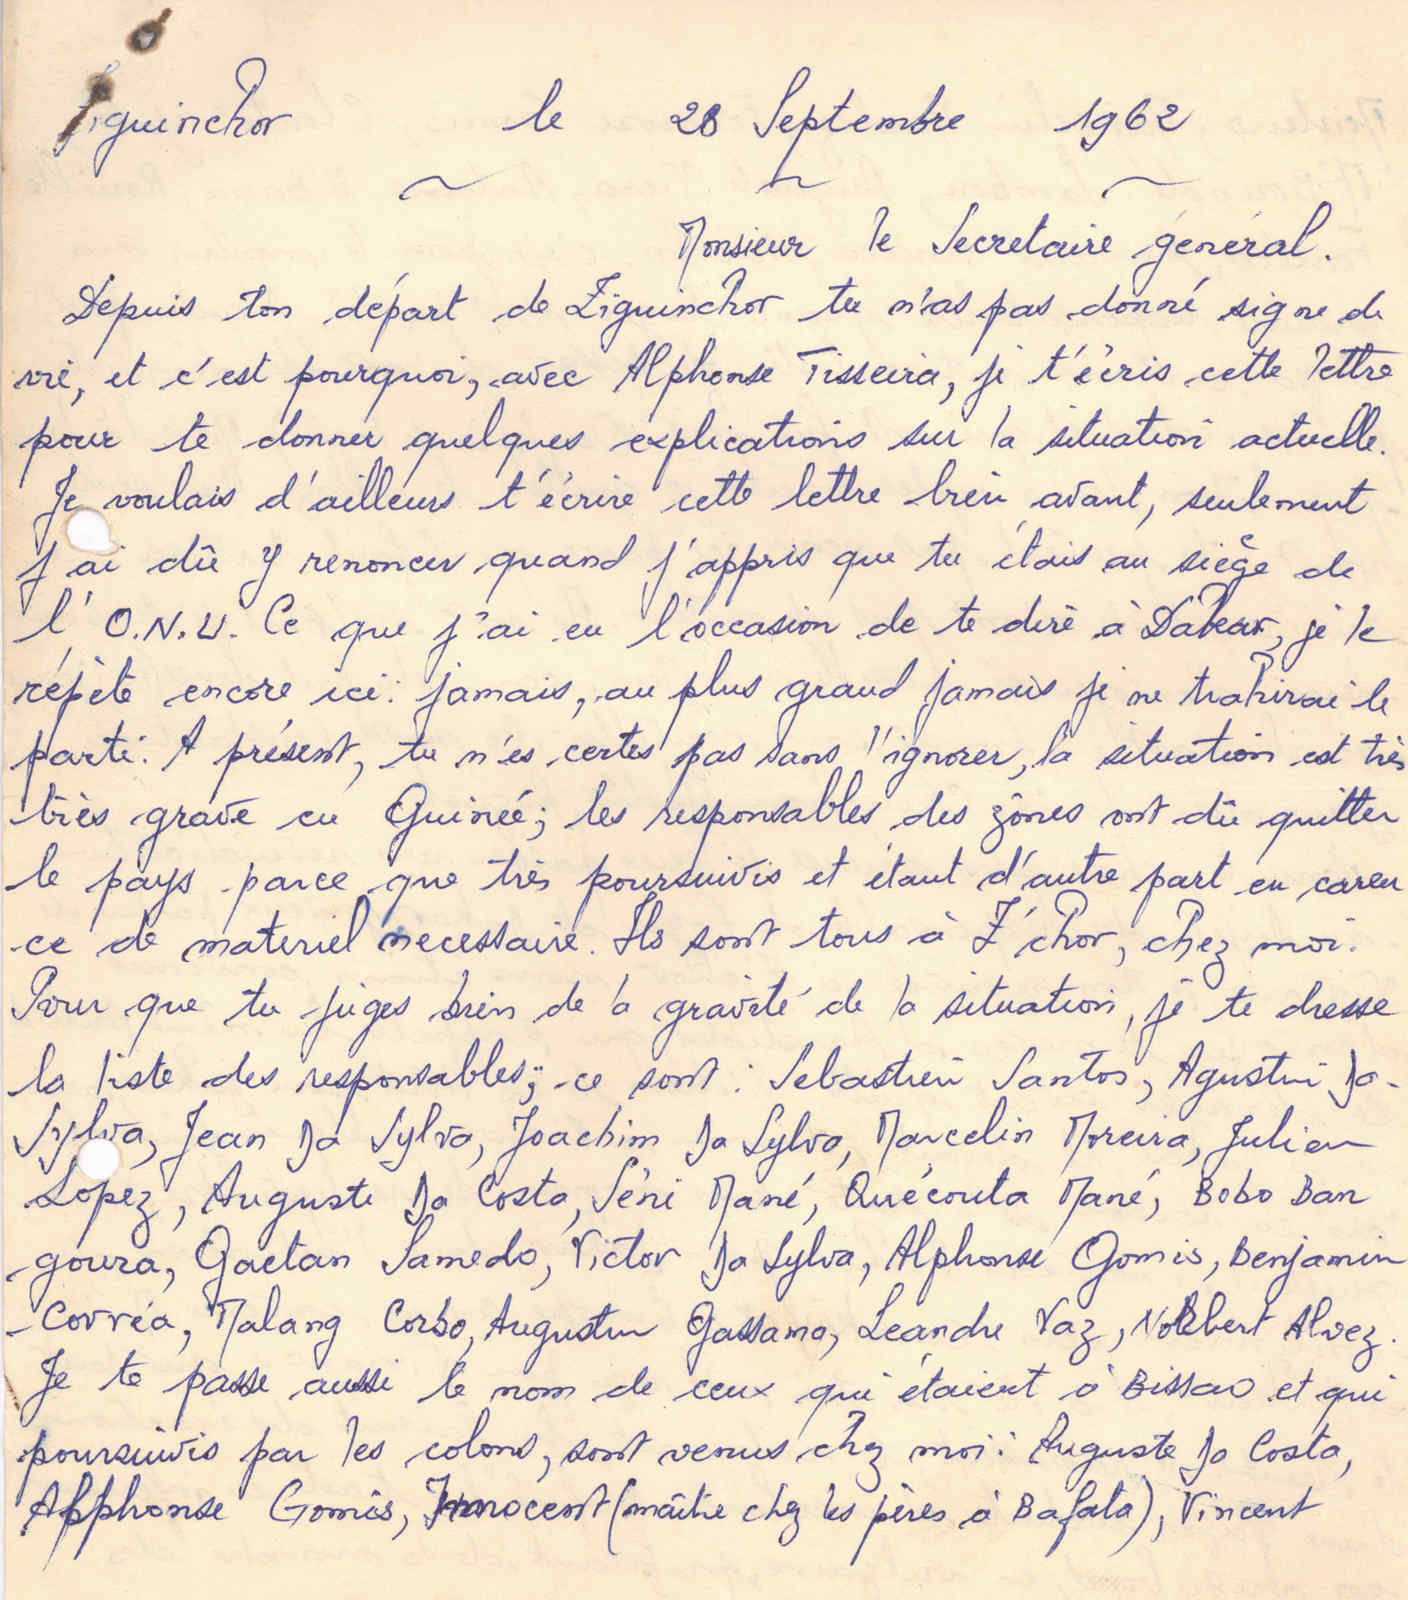 Ziguinchor le 28 Septembre 1962
Monsieur le Secretaire général.
Depuis ton départ de Ziguinchor tu n'as pas donné signe de
vie, et c'est pourquoi, avec Alphonse Tisseira, je t'écris cette lettre
pour te donner quelques explications sur la situation actuelle.
Je voulais d'ailleurs t'écrire cette lettre bien avant, seulement
j'ai dû y renoncer quand j'appris que tu étais au siège de
l'O.N.U. Ce que j'ai eu l'occasion de te dire à Dakar, je le
répète encore ici: jamais, au plus grand jamais je ne trahirai le
parti. A présent, tu n'es certes pas sans l'ignorer, la situation est très
très grave en Guinée; les responsables des zônes ont dû quitter
le pays parce que très poursuivis et étant d'autre part en caren
-ce de materiel necessaire. Ils sont tous à Z'chor, chez moi.
Pour que tu juges bien de la gravité de la situation, je te dresse
la liste des responsables; ce sont : Sebastien Santos, Agustin Da-
Sylva, Jean Da Sylva, Joachim Da Sylva, Marcelin Moreira, Julien
Lopez, Auguste Da Costa, Séni Mané, Quécouta Mané, Bobo Ban
goura, Gaetan Samedo, Victor Da Sylva, Alphonse Gomis, Benjamin
-Corréa, Malang Corbo, Augustin Gassama, Léandre Vaz, Norbert Alvez.
Je te passe aussi le nom de ceux qui étaient à Bissao et qui
poursuivis par les colons, sont venus chez moi: Auguste Da Costa,
Alphonse Gomis, Innocent (maître chez les pères à Bafata), Vincent